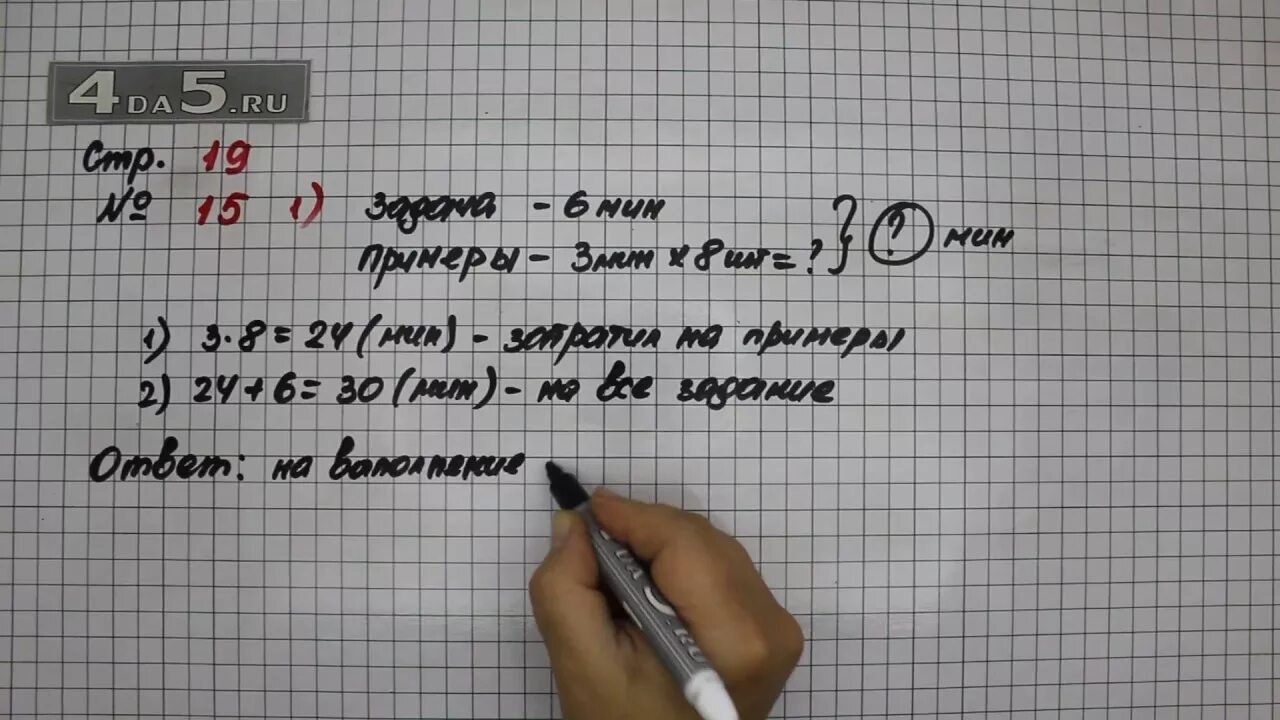 4DA5.RU
Стр. 19
№ 15 1) задача - 6 мин
примеры - 3мин х 8 шт = ? } ? мин
1) 3·8 = 24 (мин) - затратил на примеры
2) 24 + 6 = 30 (мин) - на все задание
Ответ: на ваполнение